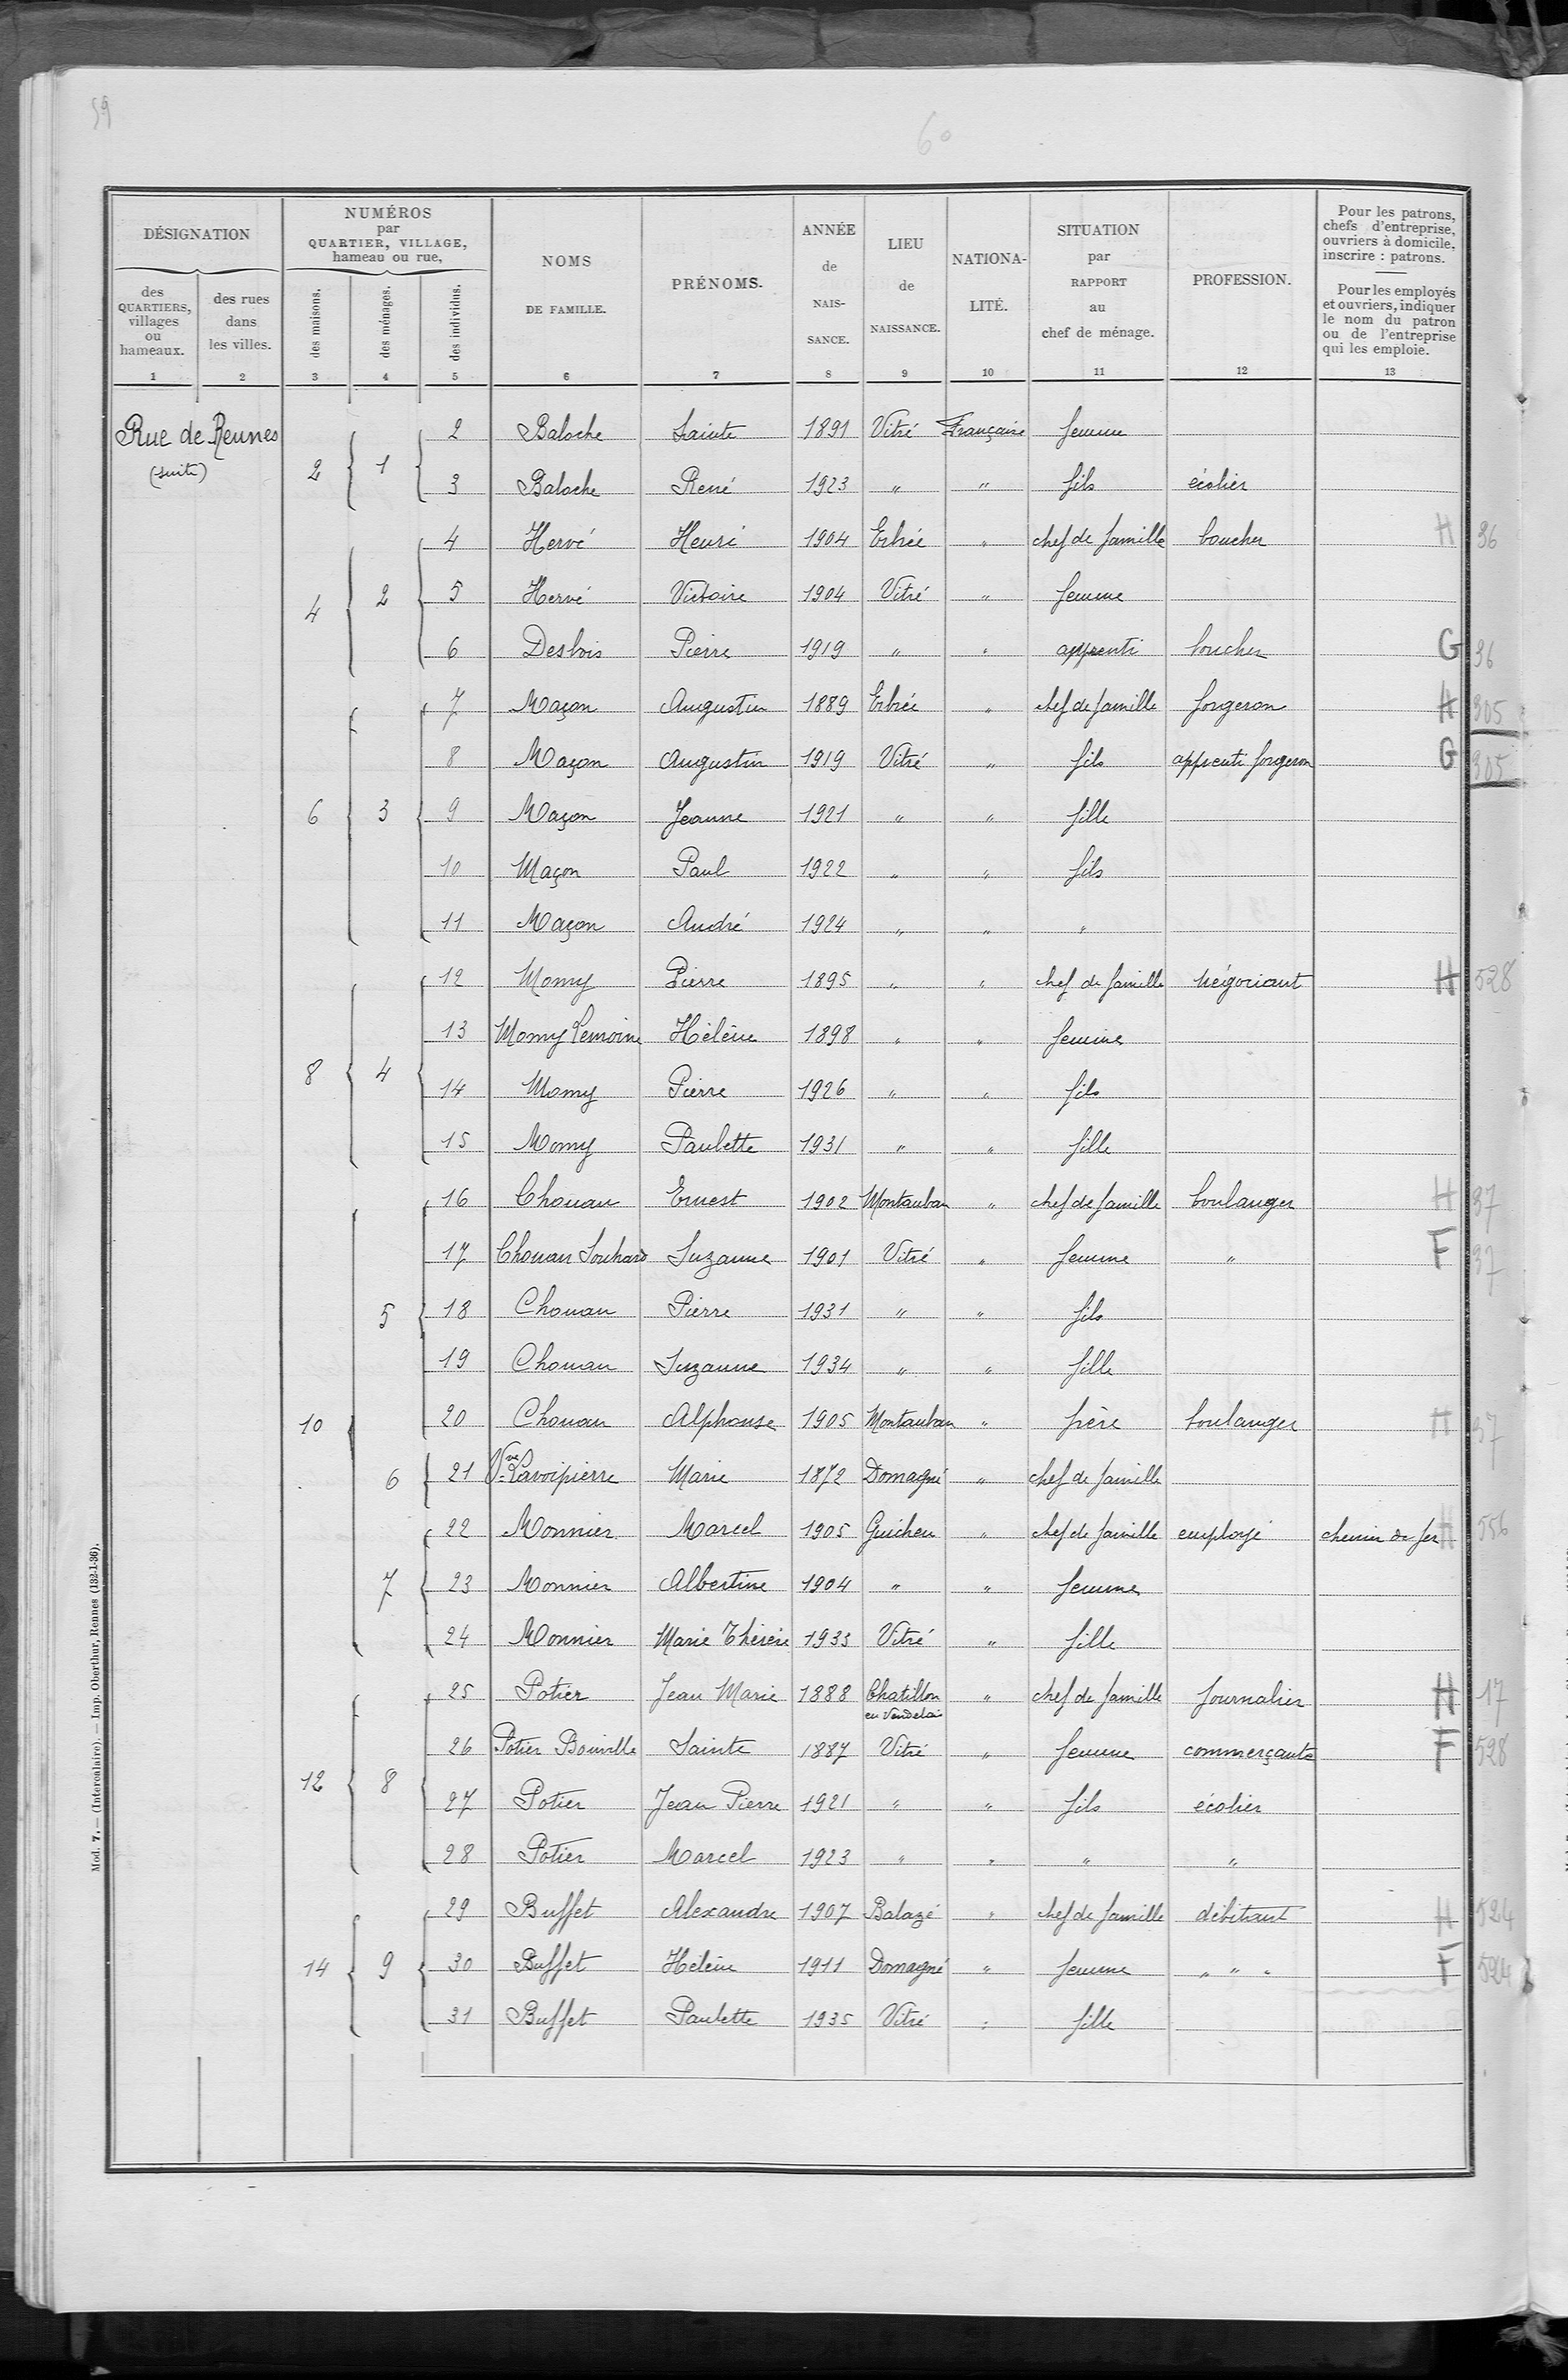 59
60
DÉSIGNATION
des QUARTIERS, villages ou hameaux.
des rues dans les villes.
NUMÉROS par QUARTIER, VILLAGE, hameau ou rue,
des maisons.
des ménages.
des individus.
NOMS DE FAMILLE.
PRÉNOMS.
ANNÉE de NAISSANCE.
LIEU de NAISSANCE.
NATIONALITÉ.
SITUATION par RAPPORT au chef de ménage.
PROFESSION.
Pour les patrons, chefs d'entreprise, ouvriers à domicile, inscrire : patrons.
Pour les employés et ouvriers, indiquer le nom du patron ou de l'entreprise qui les emploie.
1 2 3 4 5 6 7 8 9 10 11 12 13
Rue de Rennes (suite)
2 1 2 Baloche Sainte 1891 Vitré Française femme
3 Baloche René 1923 " " fils écolier
4 2 4 Hervé Henri 1904 Erbrée " chef de famille boucher H 36
5 Hervé Victoire 1904 Vitré " femme
6 Desbois Pierre 1919 " " apprenti boucher G 36
6 3 7 Maçon Augustin 1889 Erbrée " chef de famille forgeron H 305
8 Maçon Augustin 1919 Vitré " fils apprenti forgeron G 305
9 Maçon Jeanne 1921 " " fille
10 Maçon Paul 1922 " " fils
11 Maçon André 1924 " " "
8 4 12 Momy Pierre 1895 " " chef de famille négociant H 528
13 Momy Lemoine Hélène 1898 " " femme
14 Momy Pierre 1926 " " fils
15 Momy Paulette 1931 " " fille
10 5 16 Chouan Ernest 1902 Montauban " chef de famille boulanger H 37
17 Chouan Souhard Suzanne 1901 Vitré " femme " F 37
18 Chouan Pierre 1931 " " fils
19 Chouan Suzanne 1934 " " fille
20 Chouan Alphonse 1905 Montauban " frère boulanger H 37
6 21 Vve Lavoipierre Marie 1872 Domagné " chef de famille
7 22 Monnier Marcel 1905 Guichen " chef de famille employé chemin de fer H 556
23 Monnier Albertine 1904 " " femme
24 Monnier Marie Thérèse 1933 Vitré " fille
12 8 25 Potier Jean Marie 1888 Chatillon en Vendelais " chef de famille journalier H 17
26 Potier Bouville Sainte 1887 Vitré " femme commerçante F 528
27 Potier Jean Pierre 1921 " " fils écolier
28 Potier Marcel 1923 " " " "
14 9 29 Buffet Alexandre 1907 Balazé " chef de famille débitant H 524
30 Buffet Hélène 1911 Domagné " femme " " " F 524
31 Buffet Paulette 1935 Vitré " fille
Mod. 7. — (Intercalaire). — Imp. Oberthur, Rennes (132-1-36).